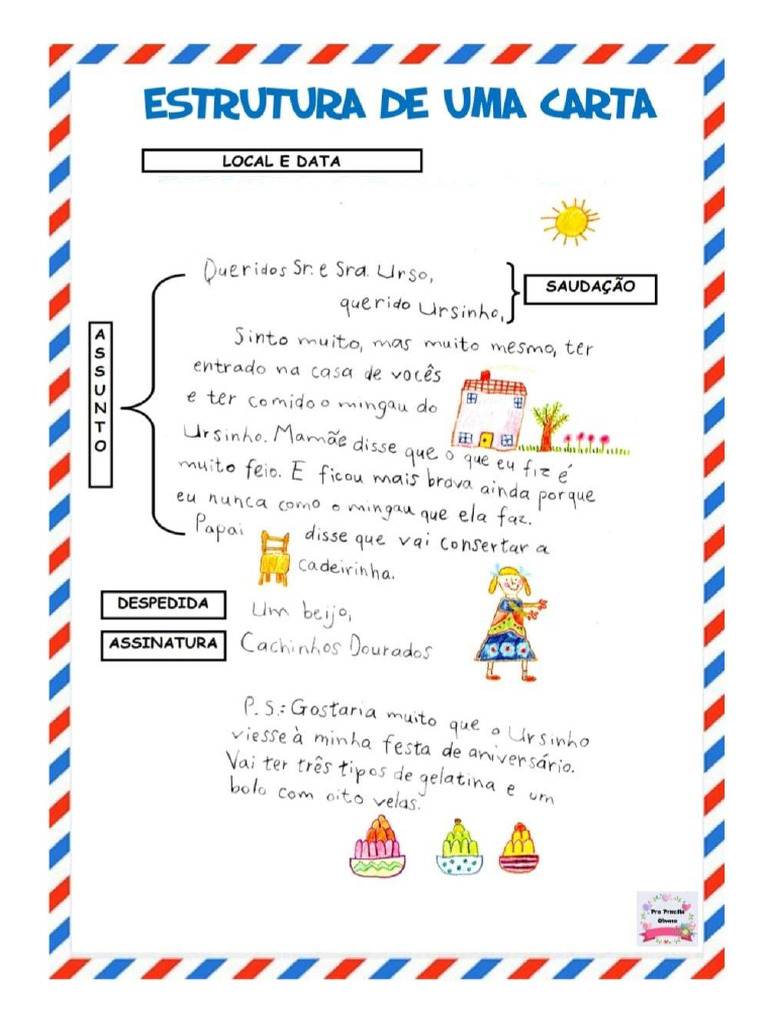 ESTRUTURA DE UMA CARTA
LOCAL E DATA
Queridos Sr. e Sra. Urso,
querido Ursinho,
SAUDAÇÃO
ASSUNTO
Sinto muito, mas muito mesmo, ter
entrado na casa de vocês
e ter comido o mingau do
Ursinho. Mamãe disse que o que eu fiz é
muito feio. E ficou mais brava ainda porque
eu nunca como o mingau que ela faz.
Papai disse que vai consertar a
cadeirinha.
DESPEDIDA
Um beijo,
ASSINATURA
Cachinhos Dourados
P.S.: Gostaria muito que o Ursinho
viesse à minha festa de aniversário.
Vai ter três tipos de gelatina e um
bolo com oito velas.
Pra Priscilla